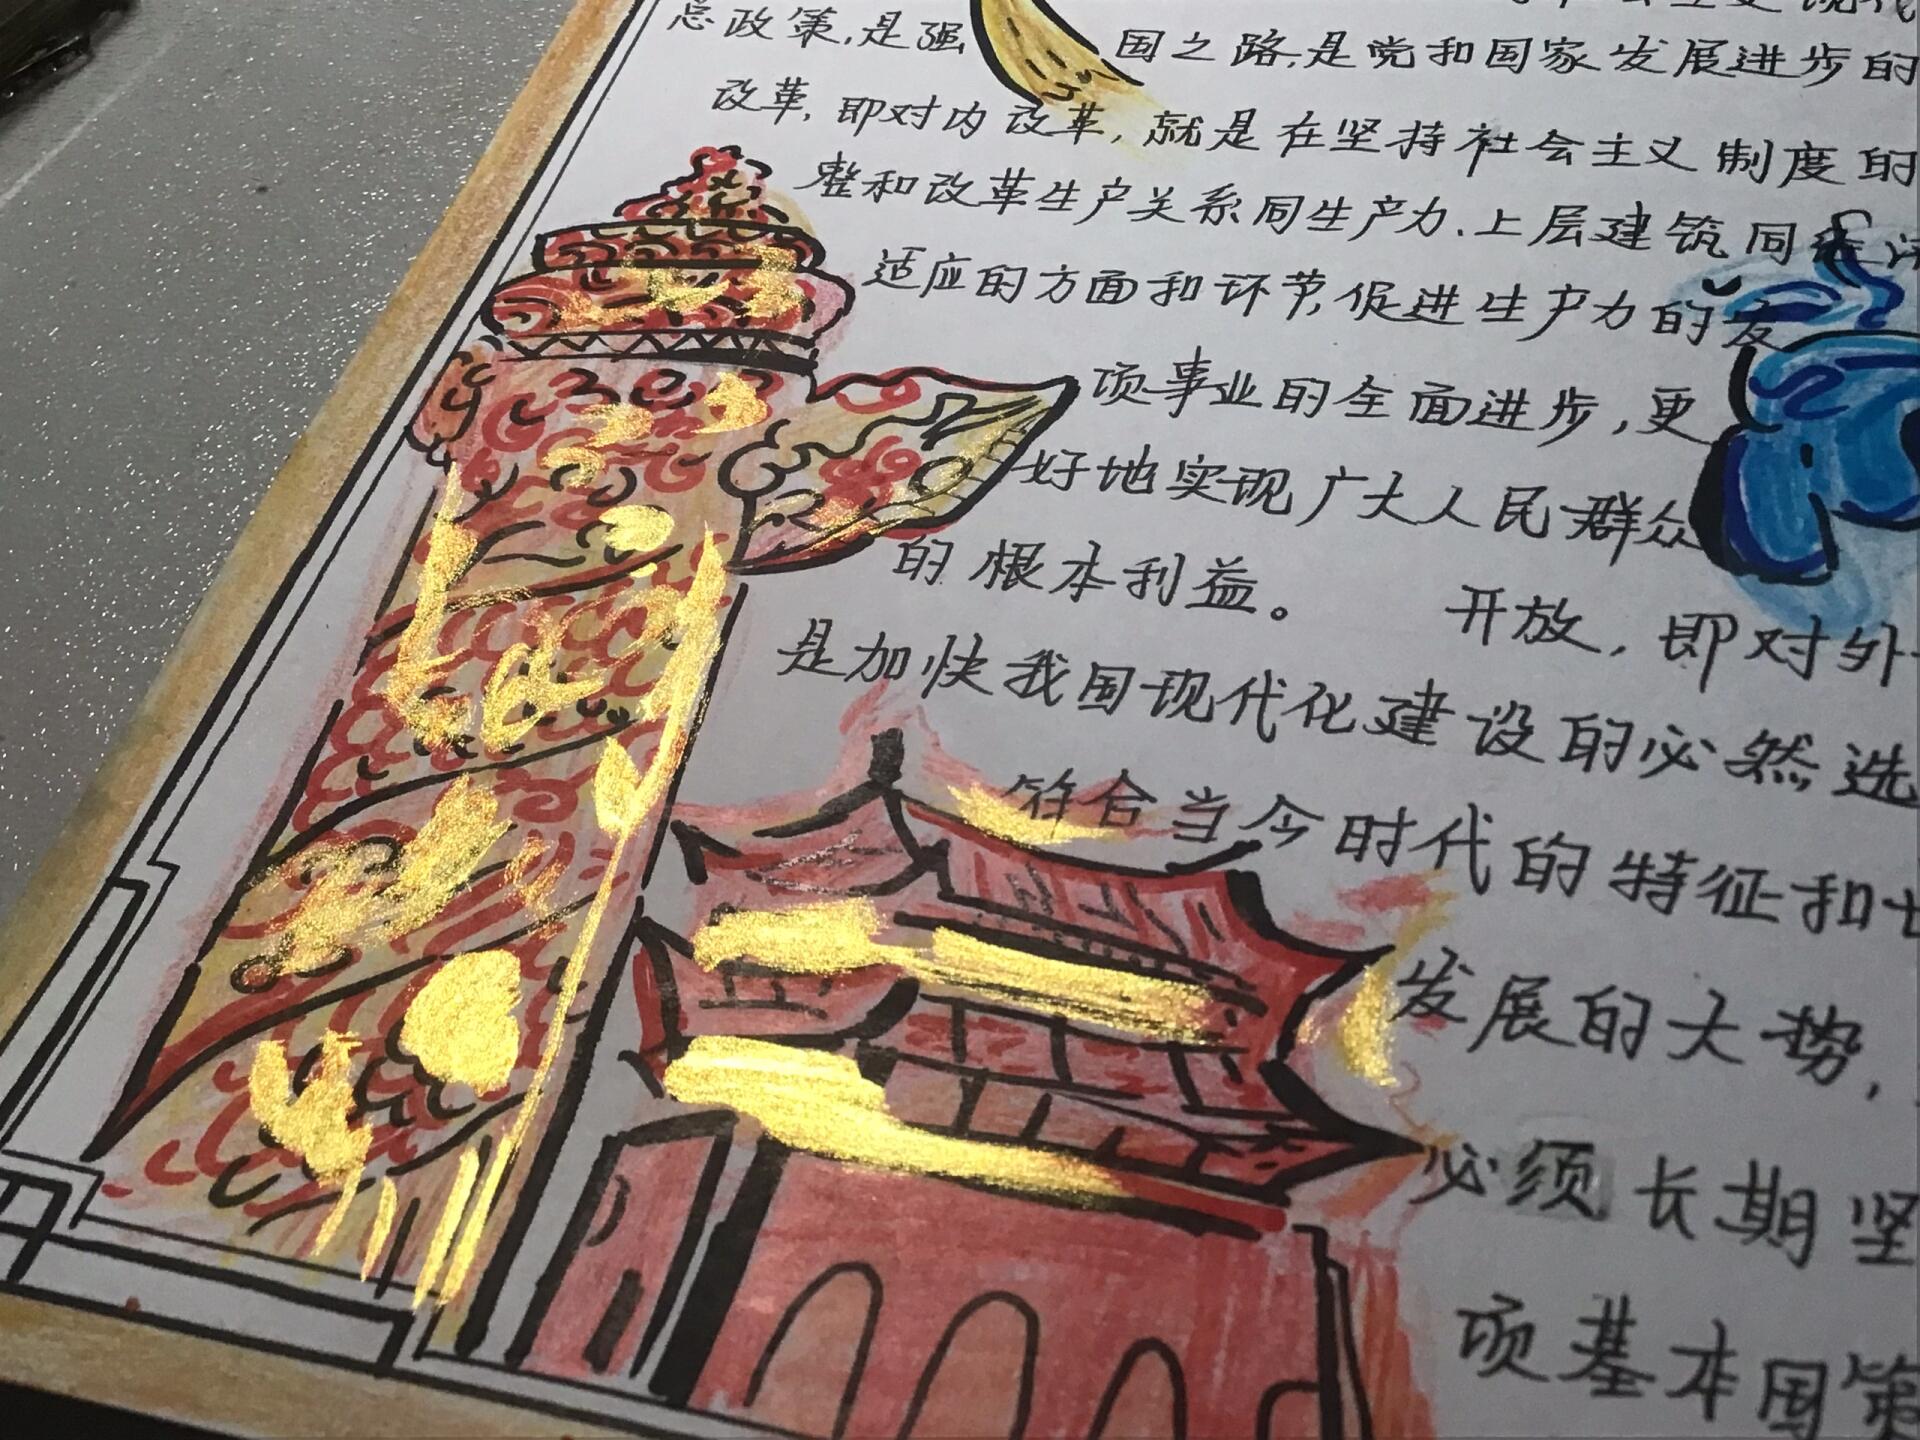 总政策,是强国之路,是党和国家发展进步的
改革,即对内改革,就是在坚持社会主义制度的
整和改革生产关系同生产力、上层建筑同
适应的方面和环节,促进生产力的发
项事业的全面进步,更
好地实现广大人民群众
的根本利益。 开放,即对外
是加快我国现代化建设的必然选
符合当今时代的特征和
发展的大势,
必须长期坚
项基本国策